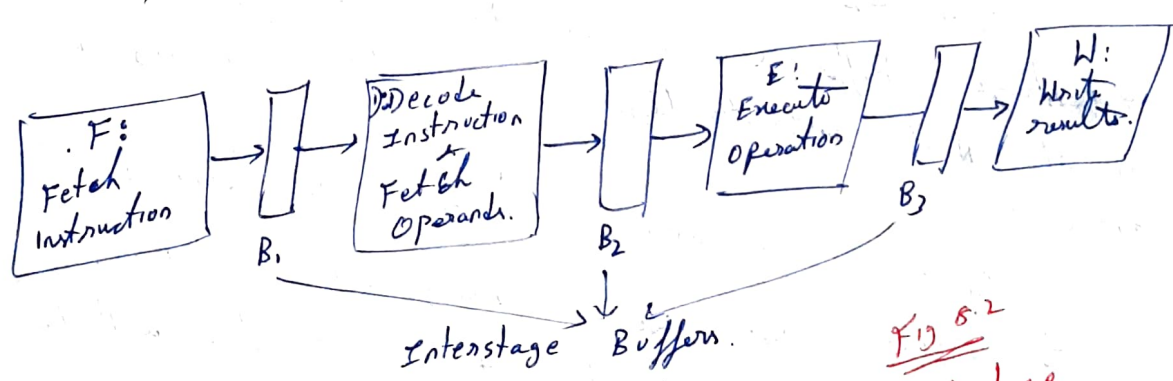 F:
Fetch
Instruction
B1
D:Decode
Instruction
&
Fetch
Operands.
B2
E:
Execute
Operation
B3
W:
Write
results.
Interstage Buffers.
Fig 8.2